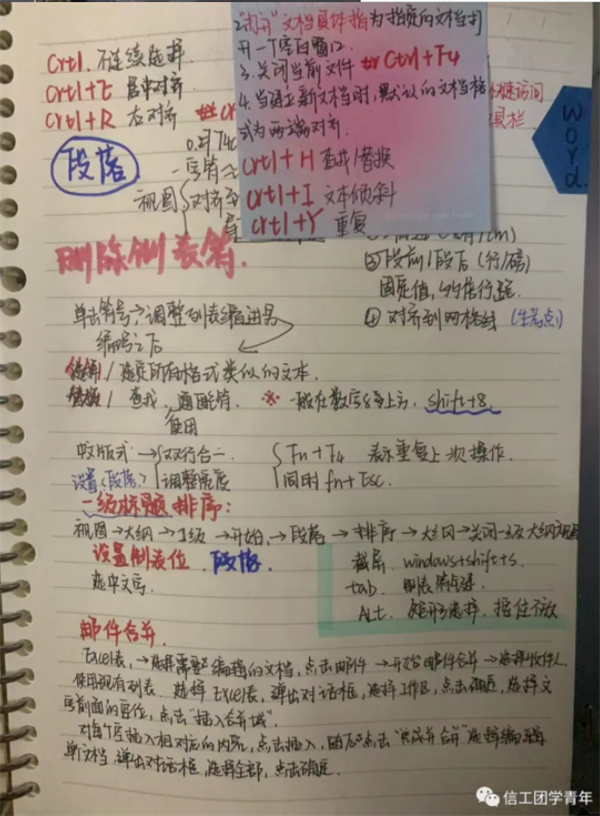 Crtl. 不连续选择
Crtl+E 居中对齐
Crtl+R 右对齐
段落
视图
2."打开"文档具体指为指定的文档打
开一个空白窗口.
3.关闭当前文件 Ctrl+F4
4.当建立新文档时,默认的文档格
式为两端对齐.
Crtl+H 查找/替换
Crtl+I 文本倾斜
Crtl+Y 重复
Word.
删除制表符.
②段前/段后(行/磅)
固定值,
④对齐到网格线
单击符号→调整列表缩进另
编号之后
选定所有格式类似的文本.
替换/查找,通配符. ※ 一般在数字8旁上方, shift+8.
使用
中文版式→双行合一.
设置(段落) 调整宽度
Fn+F4 表示重复上一次操作.
同时 fn+Esc.
一级标题排序:
视图→大纲→1级→开始→段落→排序→大纲→关闭
设置制表位. 段落.
选中文字.
截屏. windows+shift+s.
tab. 制表符键.
ALt. 矩形选择. 按住不放
邮件合并.
Excel表,→选择需要编辑的文档,点击邮件→开始邮件合并→选择收件人.
使用现有列表. 选择Excel表,弹出对话框,选择工作区,点击确定,选择文
字前面的空位,点击"插入合并域".
对每个空插入相对应的内容,点击插入,随后点击"完成并合并"选择编辑
单文档,弹出对话框,选择全部,点击确定.
信工团学青年